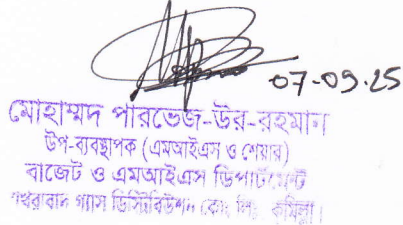 07-09-25
মোহাম্মদ পারভেজ-উর-রহমান
উপ-ব্যবস্থাপক (এমআইএস ও শেয়ার)
বাজেট ও এমআইএস ডিপার্টমেন্ট
বাখরাবাদ গ্যাস ডিস্ট্রিবিউশন কোং লিঃ কুমিল্লা।